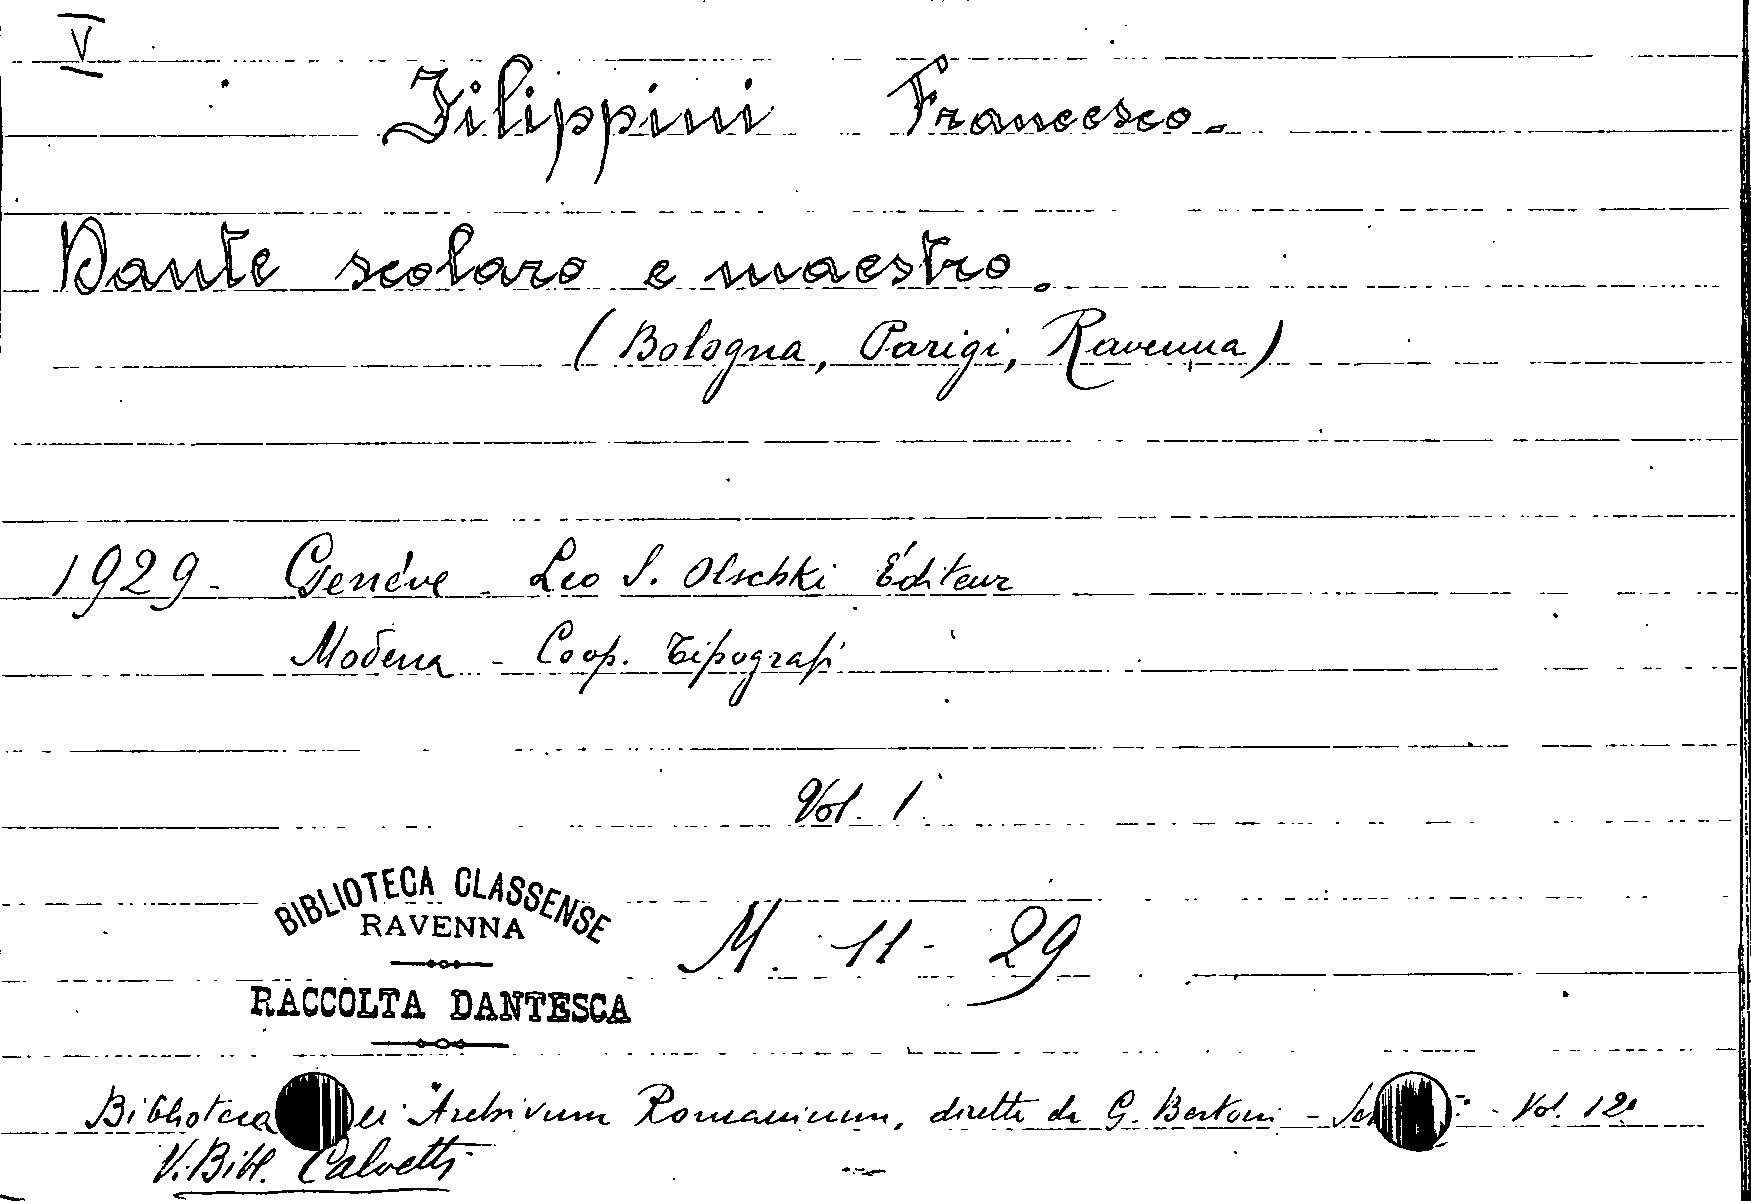 V
Filippini Francesco.
Dante scolaro e maestro.
(Bologna, Parigi, Ravenna)
1929 - Genève - Leo S. Olschki Éditeur
Modena - Coop. Tipografi
Vol. 1
BIBLIOTECA CLASSENSE
RAVENNA
M. 11 - 29
RACCOLTA DANTESCA
Biblioteca Archivum Romanicum, diretta da G. Bertoni - - Vol. 12°
V. Bibl. Calvetti